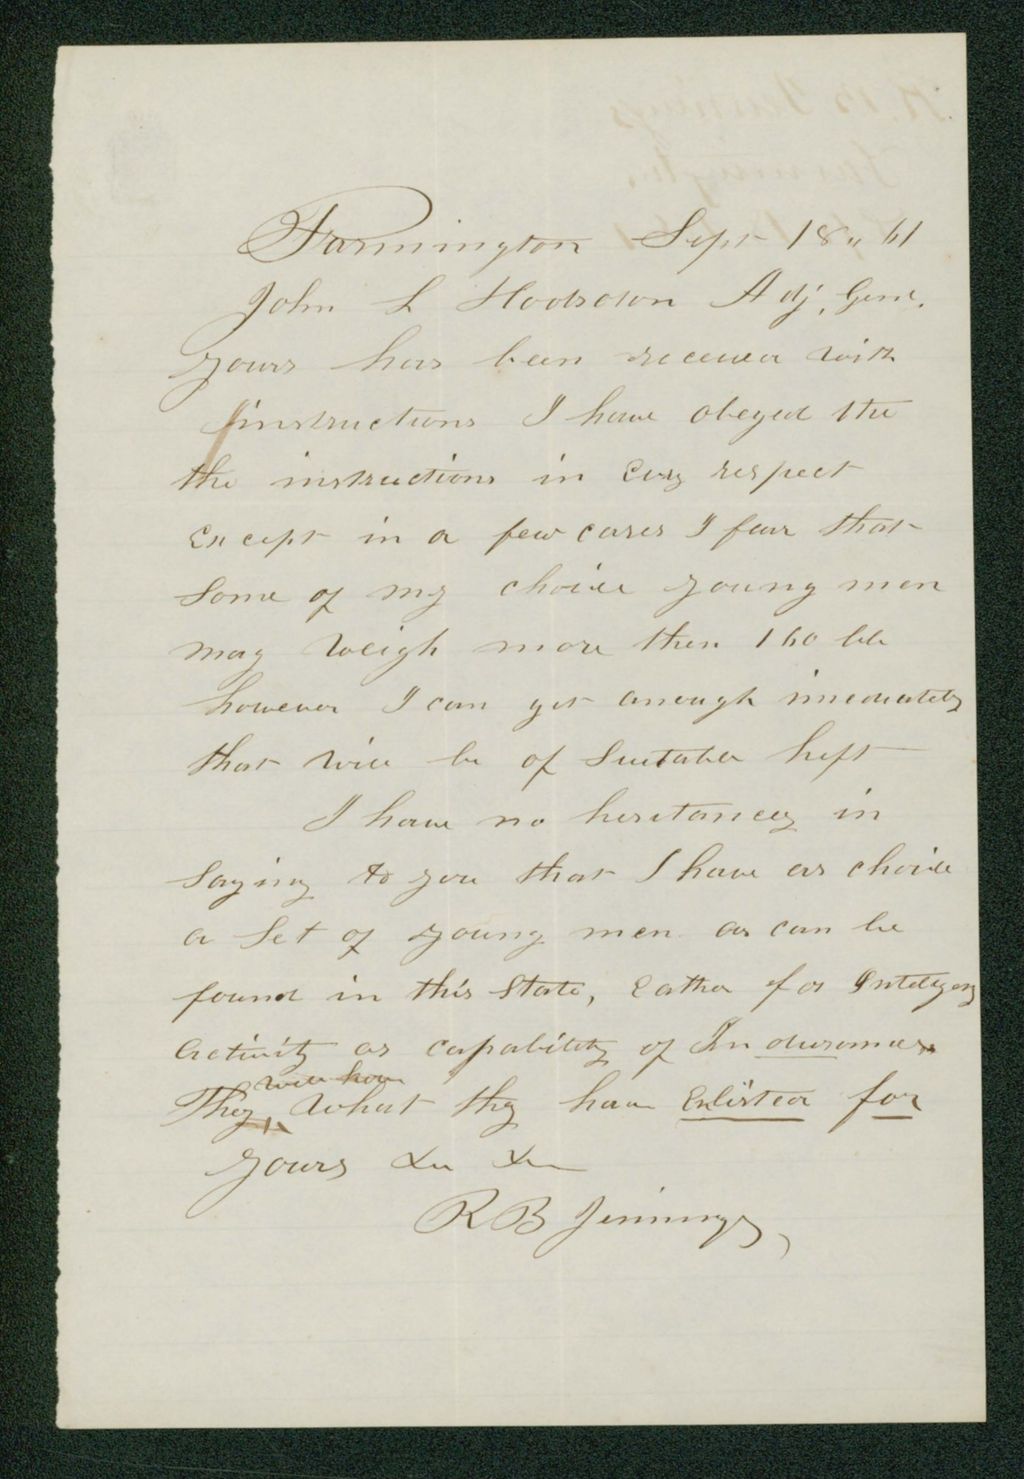 Farmington Sept 18 " 61
John L Hodsdon Adj, Genl.
yours has been received with
Instructions I have obeyed the
the instructions in evry respect
Except in a few cases I fear that
Some of my choice young men
may weigh more then 160 lbs
however I can get anough imediately
that will be of Suitable heft
I have no hesitancey in
Saying to you that I have as choice
a Set of young men as can be
found in this State, Eather for Inteligency
Activity or capability of Indurance.
will have
They what they have Enlisted for
yours &c &c
R B Jennings,